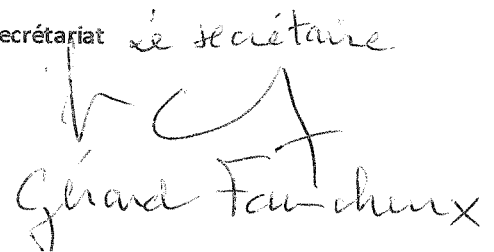 ecrétariat Le secrétaire
Gérard Faucheux